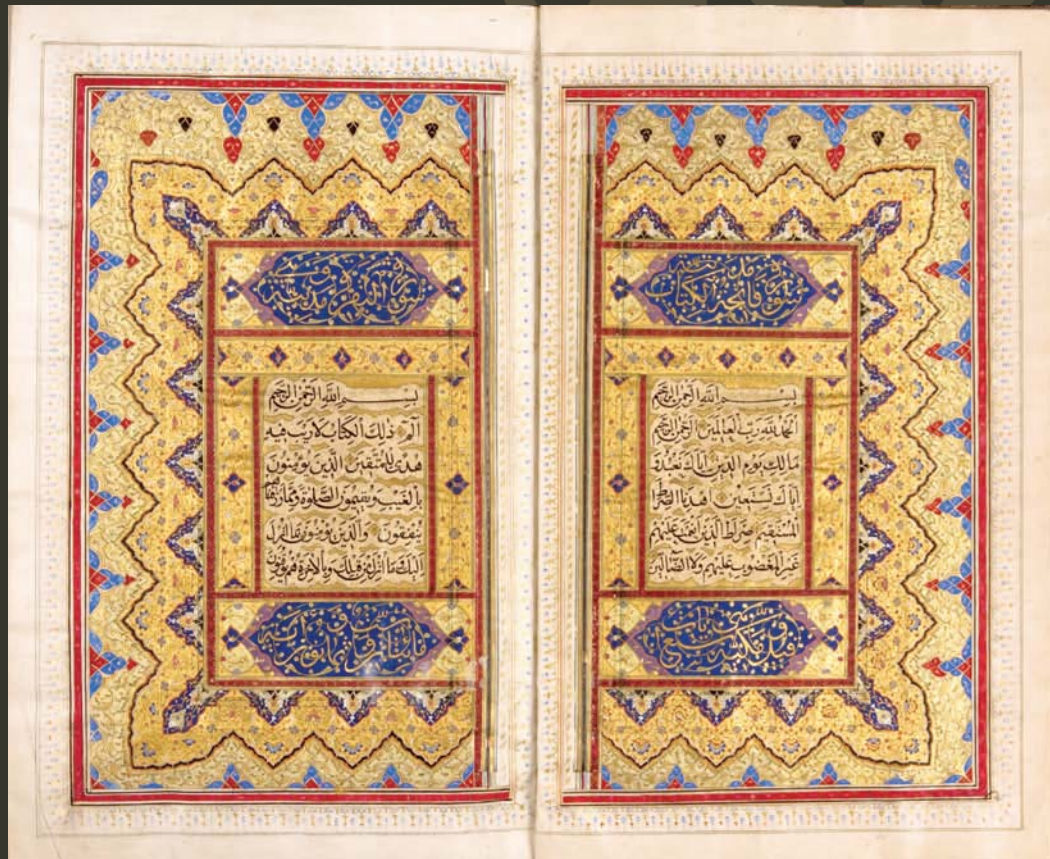 سورة فاتحة الكتاب مدنية
بِسْمِ اللَّهِ الرَّحْمٰنِ الرَّحِيمِ
اَلْحَمْدُ لِلَّهِ رَبِّ الْعَالَمِينَ الرَّحْمٰنِ الرَّحِيمِ
مَالِكِ يَوْمِ الدِّينِ اِيَّاكَ نَعْبُدُ وَ
اِيَّاكَ نَسْتَعِينُ اِهْدِنَا الصِّرَاطَ
الْمُسْتَقِيمَ صِرَاطَ الَّذِينَ اَنْعَمْتَ عَلَيْهِمْ
غَيْرِ الْمَغْضُوبِ عَلَيْهِمْ وَلَا الضَّالِّينَ
وقيل مكية سبع آيات
سورة البقرة وهي مدنية
بِسْمِ اللَّهِ الرَّحْمٰنِ الرَّحِيمِ
الم ذٰلِكَ الْكِتَابُ لَا رَيْبَ فِيهِ
هُدًى لِلْمُتَّقِينَ الَّذِينَ يُؤْمِنُونَ
بِالْغَيْبِ وَيُقِيمُونَ الصَّلٰوةَ وَمِمَّا رَزَقْنَاهُمْ
يُنْفِقُونَ وَالَّذِينَ يُؤْمِنُونَ بِمَا اُنْزِلَ
اِلَيْكَ وَمَا اُنْزِلَ مِنْ قَبْلِكَ وَبِالْاٰخِرَةِ هُمْ يُوقِنُونَ